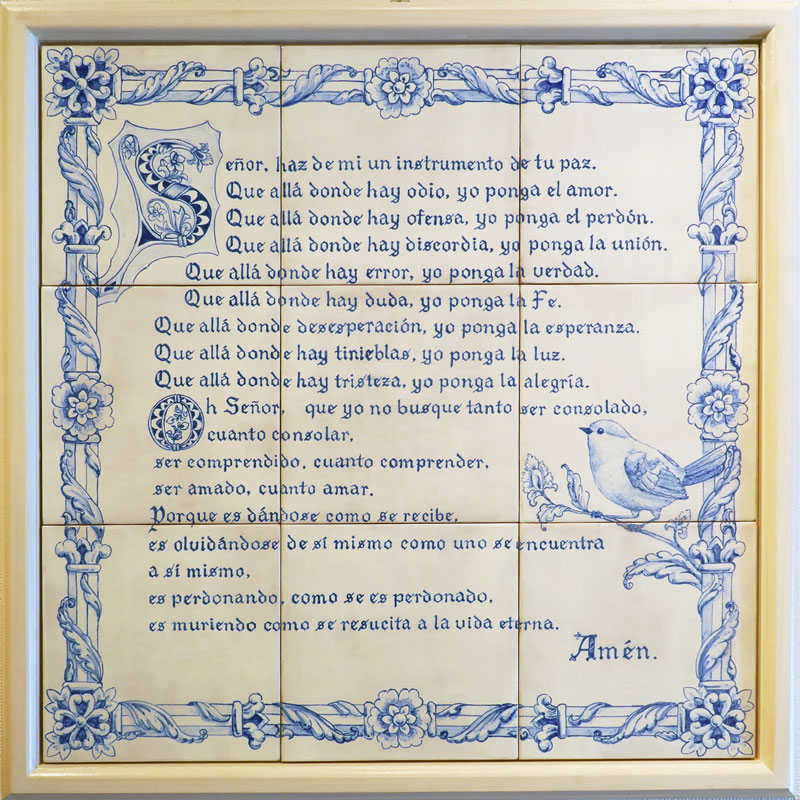 Señor, haz de mi un instrumento de tu paz.
Que allá donde hay odio, yo ponga el amor.
Que allá donde hay ofensa, yo ponga el perdón.
Que allá donde hay discordia, yo ponga la unión.
Que allá donde hay error, yo ponga la verdad.
Que allá donde hay duda, yo ponga la Fe.
Que allá donde desesperación, yo ponga la esperanza.
Que allá donde hay tinieblas, yo ponga la luz.
Que allá donde hay tristeza, yo ponga la alegría.
Oh Señor, que yo no busque tanto ser consolado,
cuanto consolar,
ser comprendido, cuanto comprender,
ser amado, cuanto amar.
Porque es dándose como se recibe,
es olvidándose de sí mismo como uno se encuentra
a sí mismo,
es perdonando, como se es perdonado,
es muriendo como se resucita a la vida eterna.
Amén.